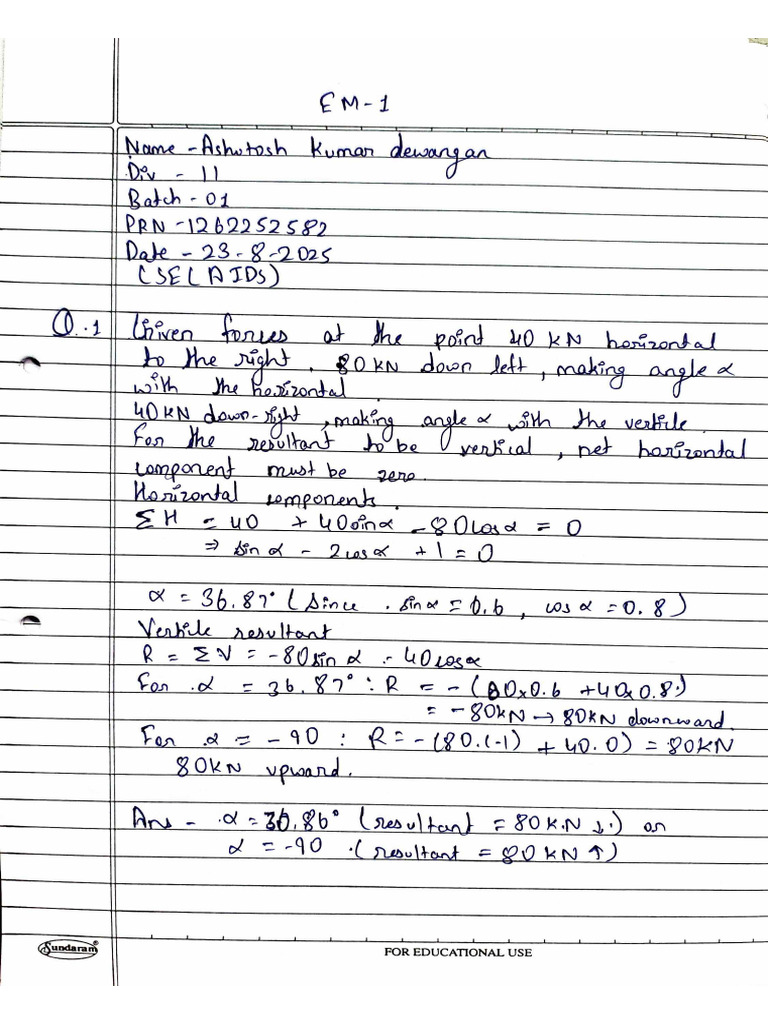 EM-1
Name - Ashutosh Kumar dewangan
Div - 11
Batch - 01
PRN - 1262252582
Date - 23-8-2025
CSE(AIDS)
Q.1 Given forces at the point 40 KN horizontal
to the right. 80KN down left, making angle α
with the horizontal.
40KN down-right, making angle α with the vertile.
For the resultant to be vertical, net horizontal
component must be zero.
Horizontal components.
ΣH = 40 + 40sinα - 80cosα = 0
⇒ sinα - 2cosα + 1 = 0
α = 36.87° (Since . sinα = 0.6, cosα = 0.8)
Vertile resultant
R = ΣV = -80sinα - 40cosα
For .α = 36.87° : R = -(80x0.6 + 40x0.8.)
= -80KN → 80KN downward.
For α = -90 : R = -(80.(-1) + 40.0) = 80KN
80KN upward.
Ans - .α = 36.86° (resultant = 80K.N ↓.) or
α = -90 .(resultant = 80KN ↑)
Sundaram®
FOR EDUCATIONAL USE